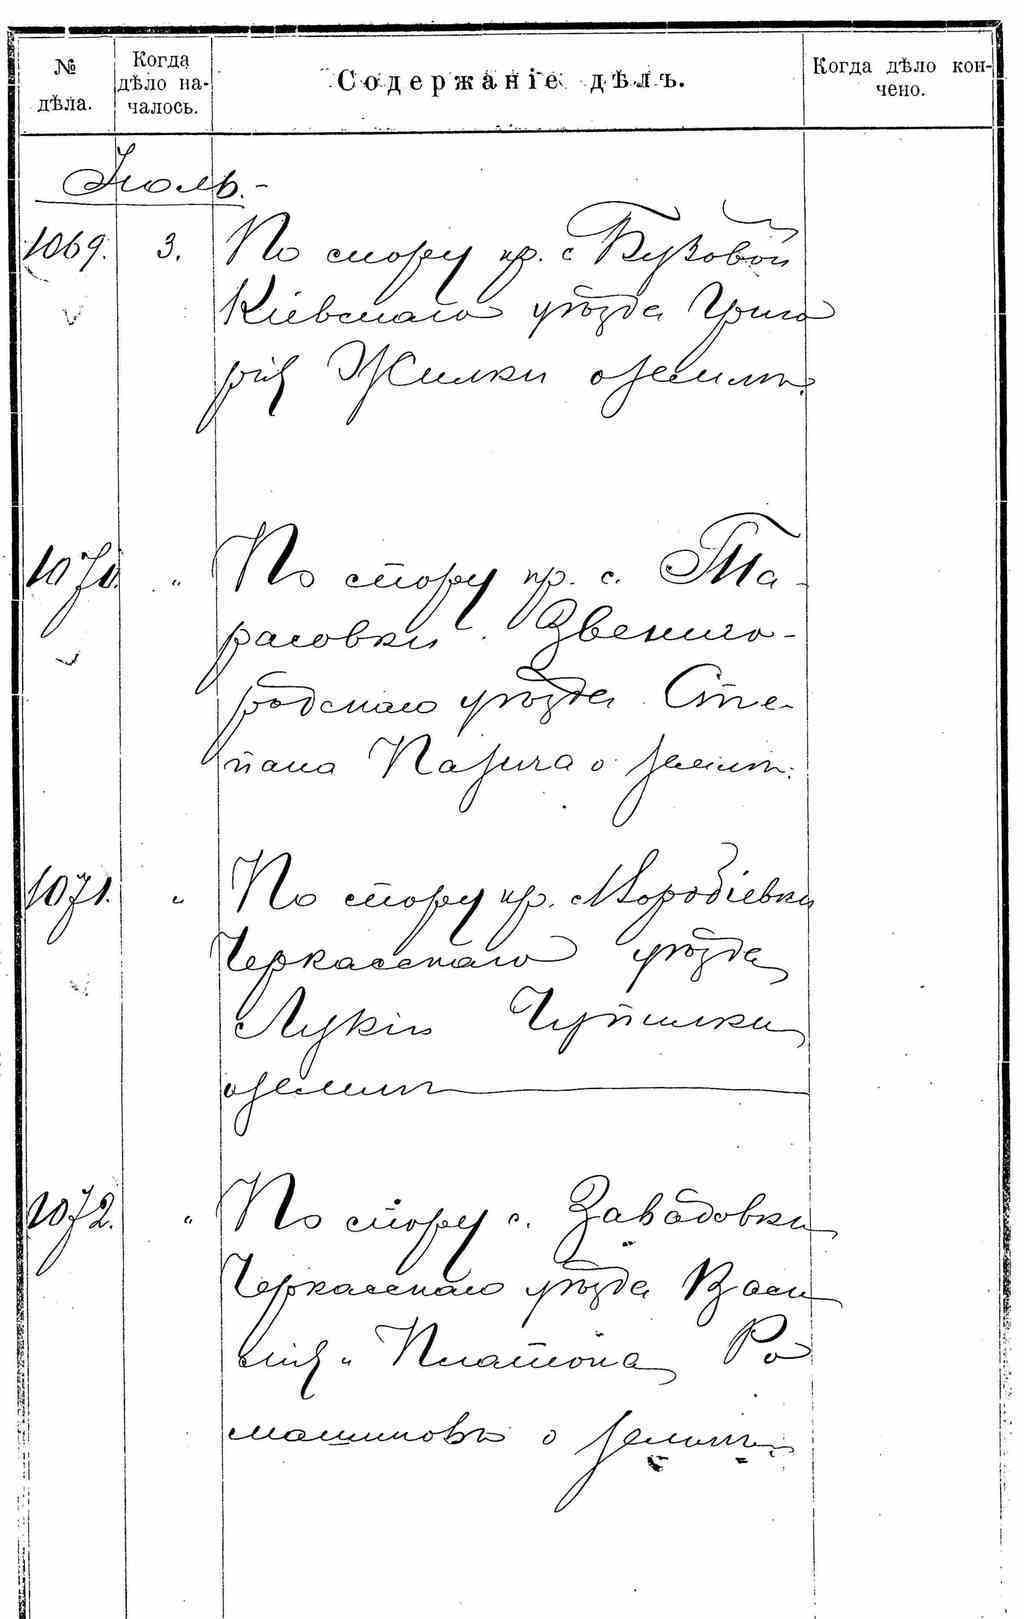 № дѣла.
Когда дѣло на-
чалось.
Содержаніе дѣлъ.
Когда дѣло кон-
чено.
Іюль.-
1069. 3. По спору кр. с Бузовой
Кіевскаго уѣзда Григо
рія Жилки о землѣ.
1070. " По спору кр. с. Та-
расовки Звениго-
родскаго уѣзда Сте-
пана Казича о землѣ.
1071. " По спору кр. Мородіевки
Черкасскаго уѣзда
Лукіи Чупилки
о землѣ
1072. " По спору с. Завадовки
Черкасскаго уѣзда Васи
лія и Платона Ро
машиковъ о землѣ.